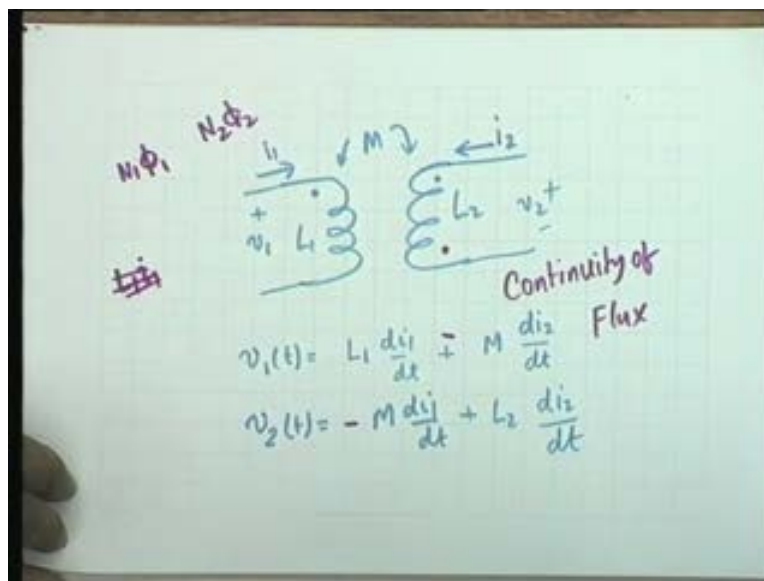 N₁Φ₁ N₂Φ₂
i₁ M i₂
+ v₁ L₁ L₂ v₂ + -
Continuity of
Flux
v₁(t) = L₁ di₁/dt - M di₂/dt
v₂(t) = - M di₁/dt + L₂ di₂/dt